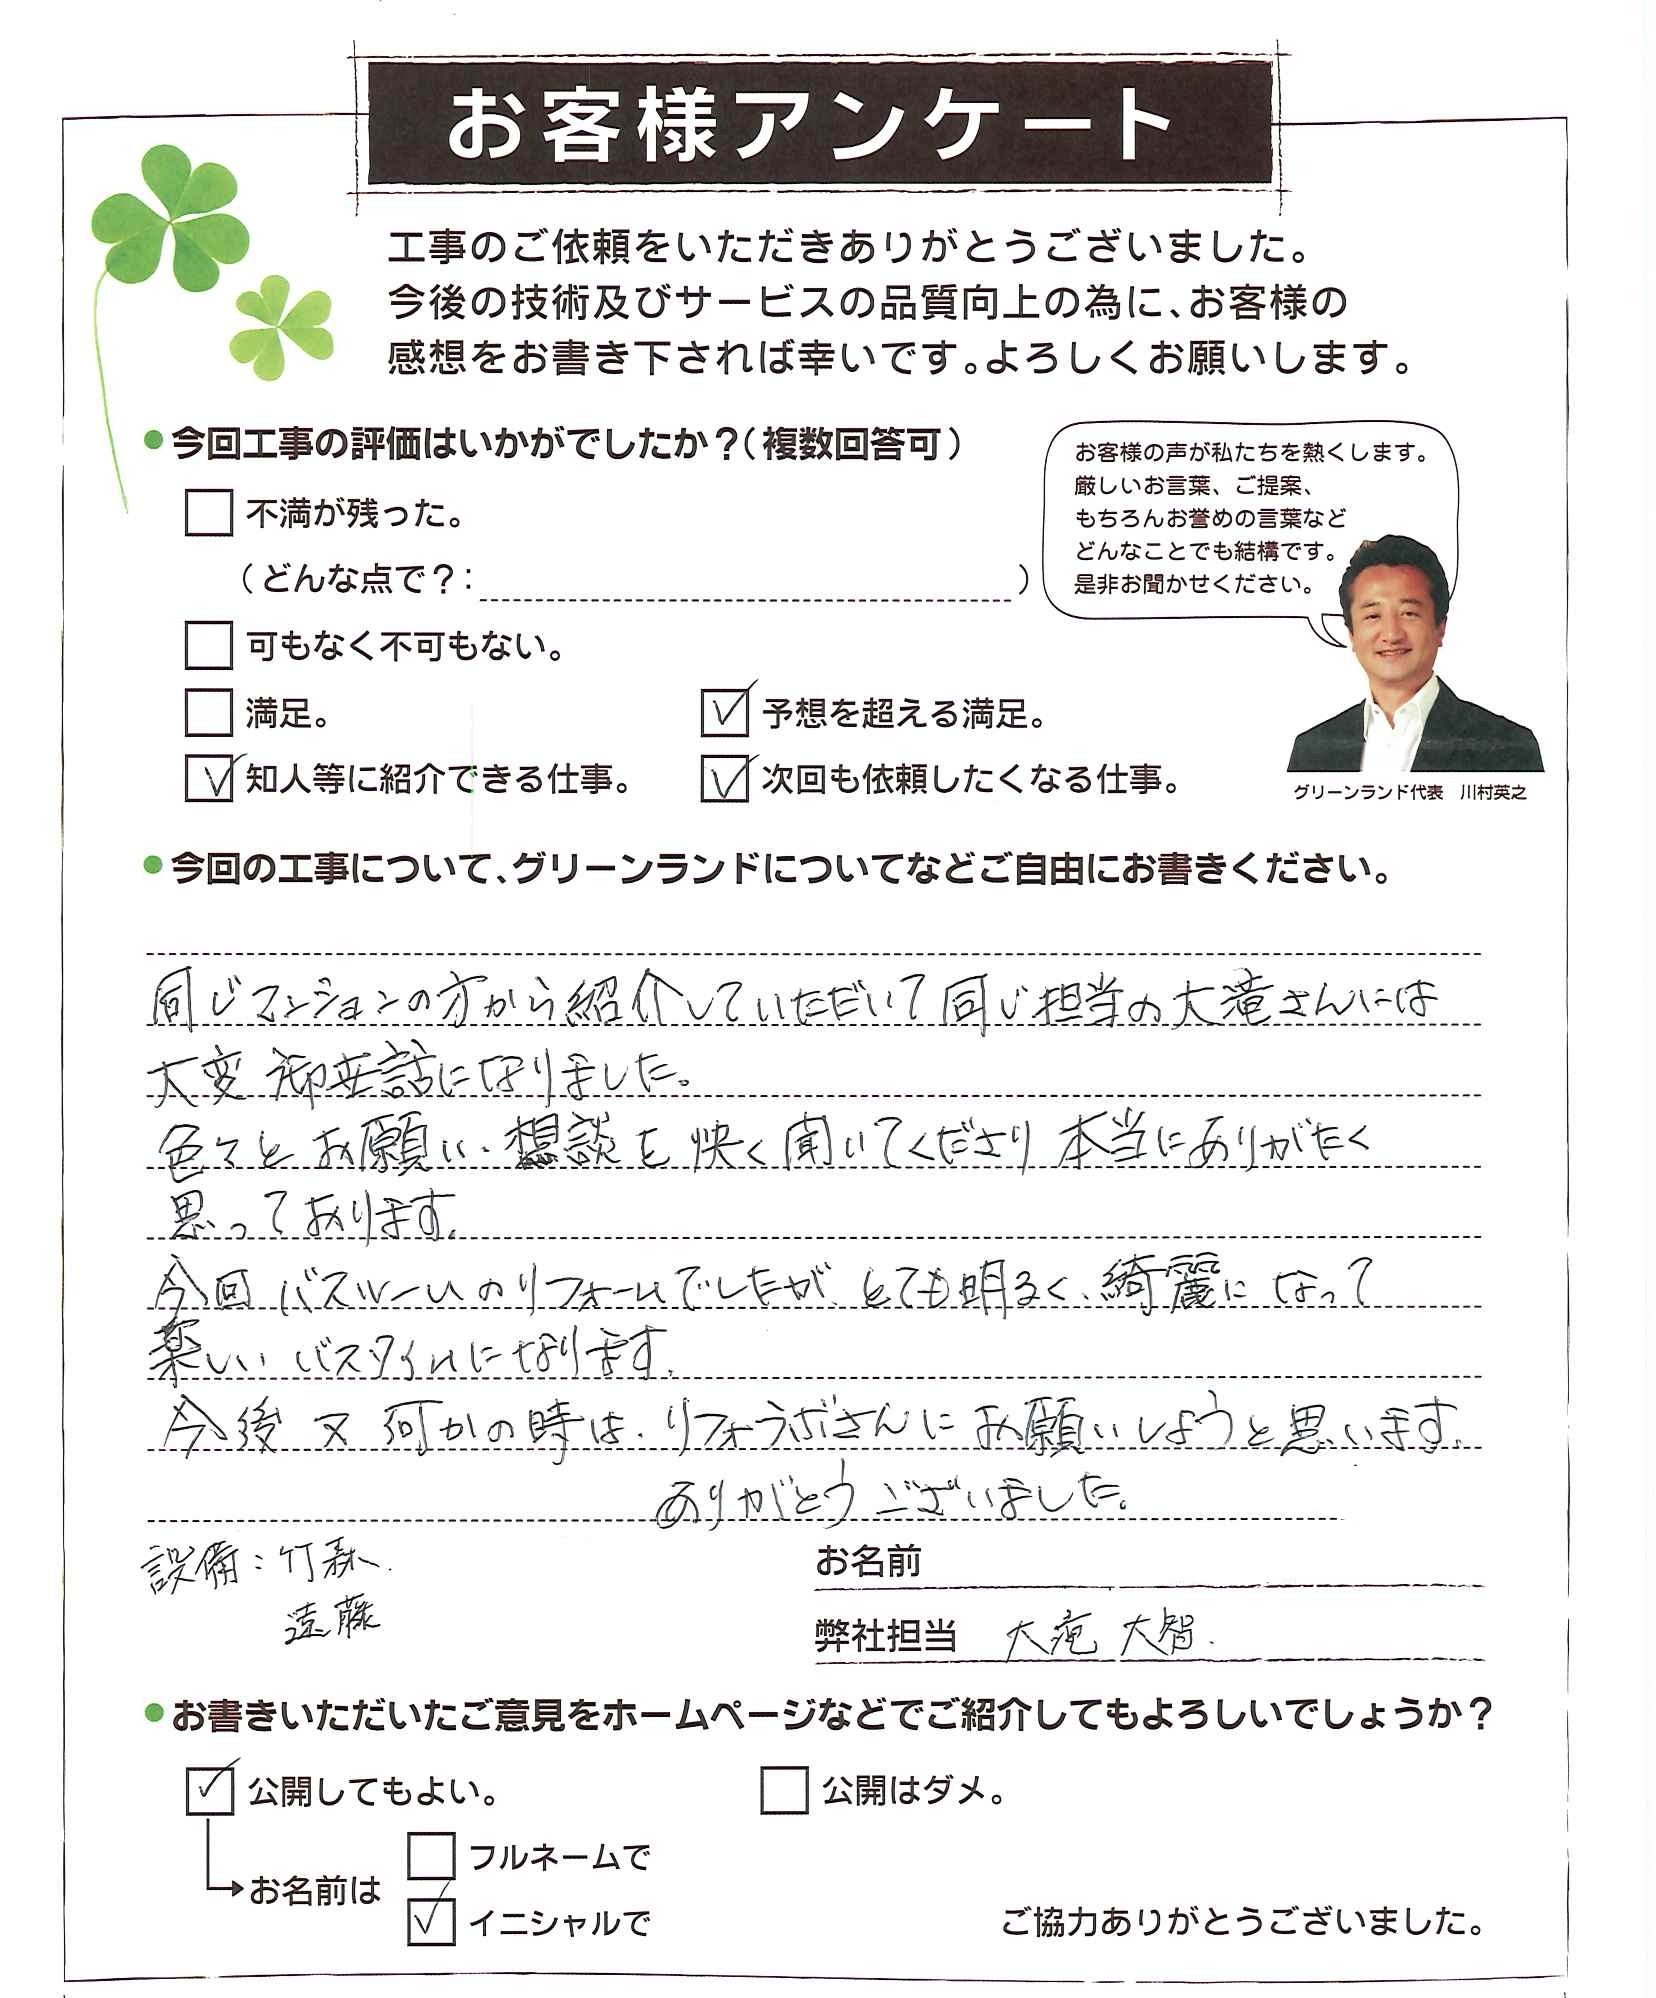 お客様アンケート
工事のご依頼をいただきありがとうございました。
今後の技術及びサービスの品質向上の為に、お客様の
感想をお書き下されば幸いです。よろしくお願いします。
●今回工事の評価はいかがでしたか？（複数回答可）
不満が残った。
（どんな点で？：　）
可もなく不可もない。
満足。
予想を超える満足。
知人等に紹介できる仕事。
次回も依頼したくなる仕事。
お客様の声が私たちを熱くします。
厳しいお言葉、ご提案、
もちろんお誉めの言葉など
どんなことでも結構です。
是非お聞かせください。
グリーンランド代表　川村英之
●今回の工事について、グリーンランドについてなどご自由にお書きください。
同じマンションの方から紹介していただいて同じ担当の大滝さんには
大変御世話になりました。
色々とお願い、想談を快く聞いてくださり本当にありがたく
思っております。
今回バスルームのリフォームでしたが、とても明るく、綺麗になって
楽しいバスタイムになります。
今後又何かの時は、リフォうぶさんにお願いしようと思います。
ありがとうございました。
設備：竹森
遠藤
お名前
弊社担当　大滝 大智
●お書きいただいたご意見をホームページなどでご紹介してもよろしいでしょうか？
公開してもよい。
公開はダメ。
お名前は
フルネームで
イニシャルで
ご協力ありがとうございました。